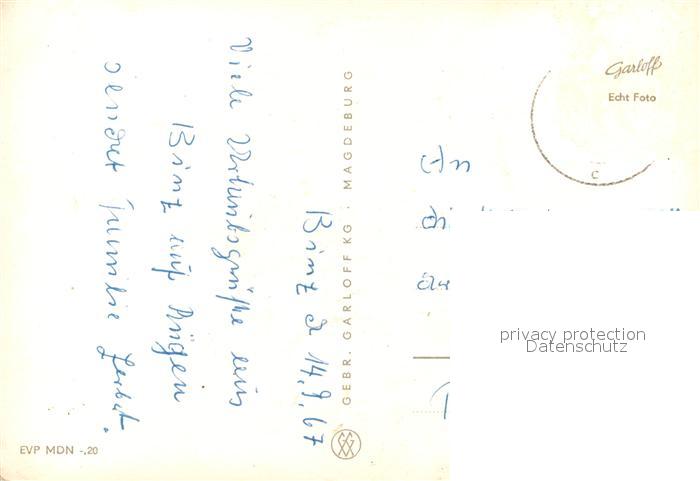 Binz d 14.9.67
Viele Urlaubsgrüße aus
Binz auf Rügen
sendet Familie
GEBR. GARLOFF KG · MAGDEBURG
EVP MDN -,20
Garloff
Echt Foto
c
An
privacy protection
Datenschutz